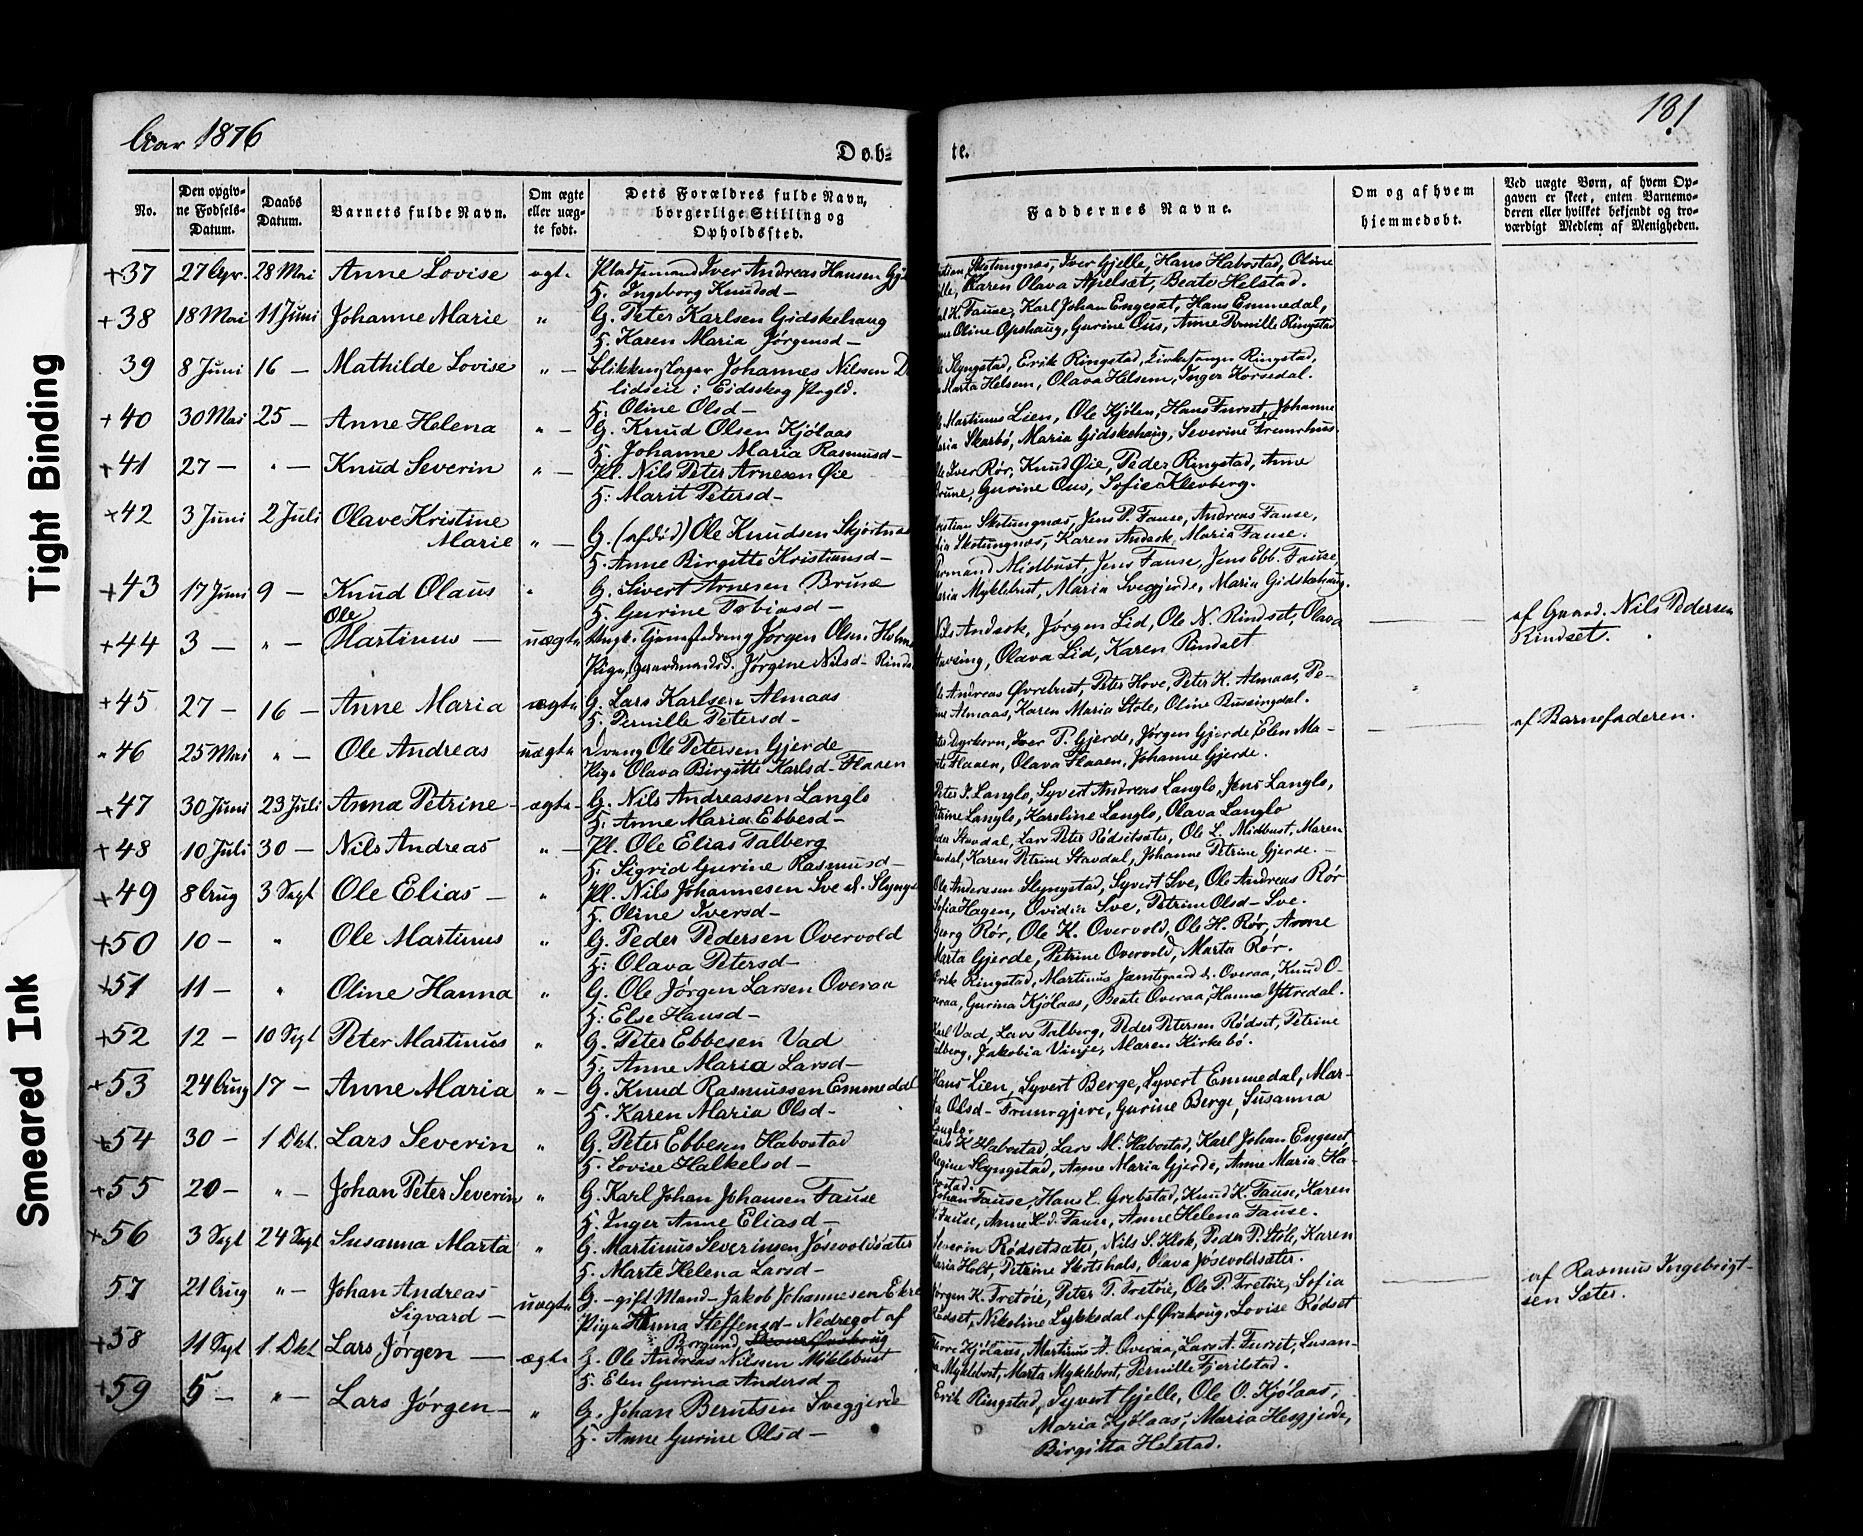 Tight Binding
Smeared Ink
Aar 1876
181
Døb-
te.
No.
Den opgiv-
ne Fødsels-
Datum.
Daabs
Datum.
Barnets fulde Navn.
Om ægte
eller uæg-
te født.
Dets Forældres fulde Navn,
borgerlige Stilling og
Opholdssted.
Faddernes Navne.
Om og af hvem
hjemmedøbt.
Ved uægte Børn, af hvem Op-
gaven er skeet, enten Barnemo-
deren eller hvilket bekjendt og tro-
værdigt Medlem af Menigheden.
+37 27 Apr. 28 Mai Anne Lovise ægte Pladsemand Iver Andreas Hansen
H. Ingeborg Knudsd-
Skotungnæs, Iver Gjelle, Hans Habostad, Oline
Karen Olava Apelsæt, Beate Helstad.
+38 18 Mai 11 Juni Johanne Marie " G. Peter Karlsen Gidskehaug
H. Karen Maria Jørgensd-
K. Fause, Karl Johan Engeset, Hans Emmedal,
Oline Opshaug, Gurine Ous, Anne Pernille Ringstad
39 8 Juni 16 - Mathilde Lovise " - Blikkenslager Johannes Nilssen
lidseie i Eidsskog Prgld.
H. Oline Olsd-
Slyngstad, Erik Ringstad, Kirkesanger Ringstad,
Marta Helsem, Olava Helsem, Inger Korsedal.
+40 30 Mai 25 - Anne Helena " - G. Knud Olsen Kjölaas
H. Johanne Maria Rasmusd-
Martinus Lien, Ole Kjölen, Hans Furset, Johanne
Maria Skarbø, Maria Gidskehaug, Severine
+41 27 - " - Knud Severin " - Pl. Nils Peter Arnesen Øie
H: Marit Petersd-
Iver Rør, Knud Øie, Peder Ringstad, Anne
Brune, Gurine Ous, Sofie Klevberg.
+42 3 Juni 2 Juli Olave Kristine
Marie " - G. (afdöd) Ole Knudsen
H. Anne Birgitte Kristiansd-
Kristian Skotungnæs, Jens P. Fause, Andreas Fause,
Skotungnæs, Karen Andesk, Maria Fause.
+43 17 Juni 9 - Knud Olaus " G. Sivert Arnesen Brune
H. Gurine Tobiasd-
Midtbust, Jens Fause, Jens Ebb. Fause,
Maria Myklebust, Maria Svegjerde, Maria Gidskehaug.
+44 3 - " - Ole
Martinus - uægte Ungk. Jørgen Olsen
Pige, Gaardmandsd. Jørgine Nilsd-
Nils Andesk, Jørgen Lid, Ole N. Rindset, Olava
Olava Lid, Karen Rindset
af Gaard. Nils Pedersen
Rindset.
+45 27 - 16 - Anne Maria ægte G. Lars Karlsen Almaas
H. Pernille Petersd-
Andreas Øvrebust, Peter Hove, Peter K. Almaas, Pe-
Almaas, Karen Maria Støle, Oline Russingdal.
46 25 Mai " - Ole Andreas uægte Dreng Ole Petersen Gjerde
Pige Olava Birgitte Karlsd- Flaaen
Dyrkorn, Iver P. Gjerde, Jørgen Gjerde, Elen Ma-
Flaaen, Olava Flaaen, Johanne Gjerde.
af Barnefaderen.
+47 30 Juni 23 Juli Anna Petrine - ægte - G. Nils Andreassen Langlo
H: Anne Maria Ebbesd-
Peter I. Langlo, Syvert Andreas Langlo, Jens Langlo,
Petrine Langlo, Karoline Langlo, Olava Langlo
+48 10 Juli 30 - Nils Andreas " - Pl. Ole Elias Talberg
H: Sigrid Gurine Rasmusd-
Peder Stavdal, Lars Peter Rödsetsæter, Ole L. Midbust, Maren
Stavdal, Karen Petrine Stavdal, Johanne Petrine Gjerde. -
+49 8 Aug 3 Sept Ole Elias - " Pl. Nils Johannesen Sve
H. Oline Iversd-
Ole Andersen Slyngstad, Syvert Sve, Ole Andreas Rör
Sofia Hagen, Ovidia Sve, Petrine Olsd- Sve.
+50 10 - " Ole Martinus " G. Peder Pedersen Overvold
H: Olava Petersd-
Georg Rör, Ole K. Overvold, Ole H. Rør, Anne
Marta Gjerde, Petrine Overvold, Marta Rör.
+51 11 - " Oline Hanna " G. Ole Jørgen Larsen Overaa
H: Else Hansd-
Erik Ringstad, Martinus Jemtegaard d. Overaa, Knud O-
veraa, Gurina Kjölaas, Beate Overaa, Hanna Yttredal.
+52 12 - 10 Sept Peter Martinus " G. Peter Ebbesen Vad
H. Anne Maria Larsd-
Karl Vad, Lars Talberg, Peder Petersen Rødset, Petrine
Talberg, Jakobia Vinje, Maren Kirkebö.
+53 24 Aug 17 - Anne Maria " - G. Knud Rasmussen Emmedal
H. Karen Maria Olsd-
Hans Lien, Syvert Berge, Syvert Emmedal, Mar-
ta Olsd- Gurine Berge, Susanna
Langlo.
+54 30 - 1 Okt. Lars Severin " G. Peter Ebbesen Habostad
H. Lovise Halkelsd-
Lars K. Habostad, Lars M. Habostad, Karl Johan Engeset,
Regine Slyngstad, Anne Maria Gjerde, Anne Maria Ha-
bostad.
+55 20 - " - Johan Peter Severin " G. Karl Johan Johansen Fause
H. Inger Anne Eliasd-
Johan Fause, Hans E. Grebstad, Knud K. Fause, Karen
Fause, Anne K.d. Fause, Anne Helena Fause.
+56 3 Sept 24 Sept Susanna Marta " G. Martinus Severinsen Jösevoldsæter
H. Marte Helena Larsd-
Severin Rödsetsæter, Nils S. Klok, Peder P. Støle, Karen
Maria Holt, Petrine Skotshals, Olava Jösevoldsæter.
57 21 Aug " - Johan Andreas
Sigvard - uægte G. - gift Mand - Jakob Johannesen Ekre
Pige Hanna Steffensd- Nedregot af
Borgund,
Jørgen K. Tretöie, Peter T. Tretöie, Ole P. Tretöie, Sofia
Rødset, Nikoline Lykkesdal af Ørskoug, Lovise Rödset
af Rasmus Ingebrigt-
sen Sæter.
+58 11 Sept 1. Okt Lars Jørgen - ægte G. Ole Andreas Nilsen Myklebust
H. Elen Gurina Andersd-
Tore Kjölaas, Martinus A. Overaa, Lars A. Furset, Susan-
na Myklebost, Marta Myklebost, Pernille Fjerilstad.
+59 5 - " - Lars Jørgen - " G. Johan Berntsen Svegjerde
H. Anne Gurine Olsd-
Erik Ringstad, Syvert Gjelle, Ole O. Kjölaas,
Maria Kjölaas, Maria Hesgjerde,
Birgitta Helstad.